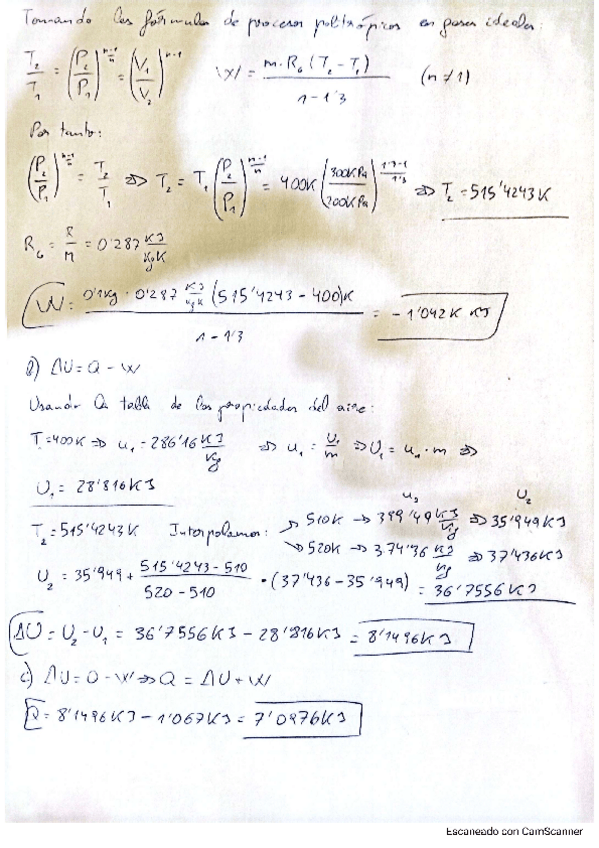 Tomando las fórmulas de procesos politrópicos en gases ideales:
T₂/T₁ = (P₂/P₁)^((n-1)/n) = (V₁/V₂)^(n-1)    W = m·R_G (T₂-T₁) / 1-1'3    (n≠1)
Por tanto:
(P₂/P₁)^((n-1)/n) = T₂/T₁ => T₂ = T₁ (P₂/P₁)^((n-1)/n) = 400K (300KPa/200KPa)^((1'3-1)/1'3) => T₂ = 515'4243K
R_G = R/M = 0'287 KJ/KgK
W = 0'1Kg · 0'287 KJ/KgK (515'4243 - 400)K / 1-1'3 = KJ
b) ΔU = Q - W
Usando la tabla de las propiedades del aire:
T=400K => u₁ = 286'16 KJ/Kg => u₁ = U₁/m => U₁ = u₁·m =>
U₁ = 28'816KJ
u₂ U₂
T₂ = 515'4243K Interpolamos: 510K → KJ/Kg => 35'949KJ
520K → 374'36 KJ/Kg => 37'436KJ
U₂ = 35'949 + 515'4243-510 / 520-510 · (37'436 - 35'949) = 36'7556KJ
ΔU = U₂-U₁ = 36'7556KJ - 28'816KJ = 8'1496KJ
c) ΔU = Q - W => Q = ΔU + W
Q = 8'1496KJ - 1'067KJ = KJ
Escaneado con CamScanner